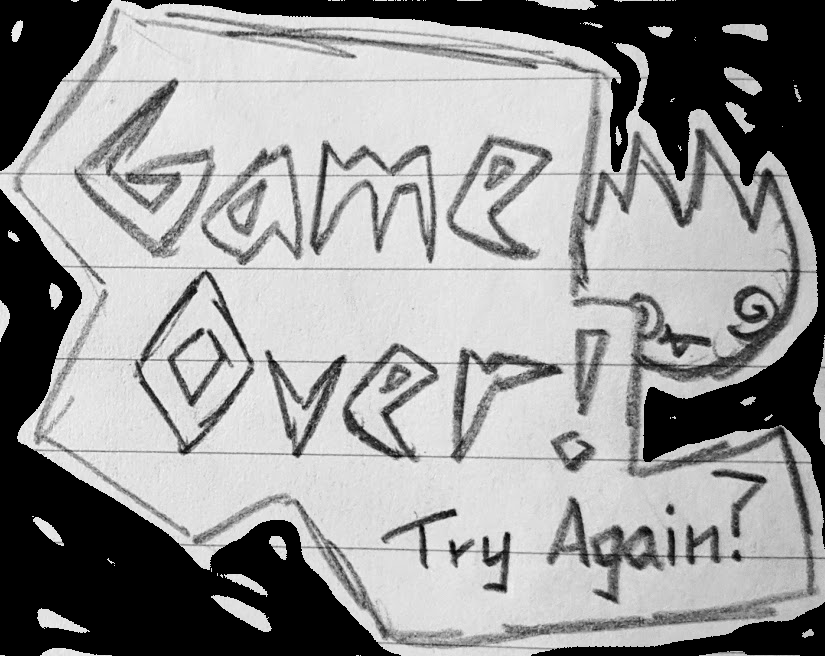 Game
Over!
Try Again?